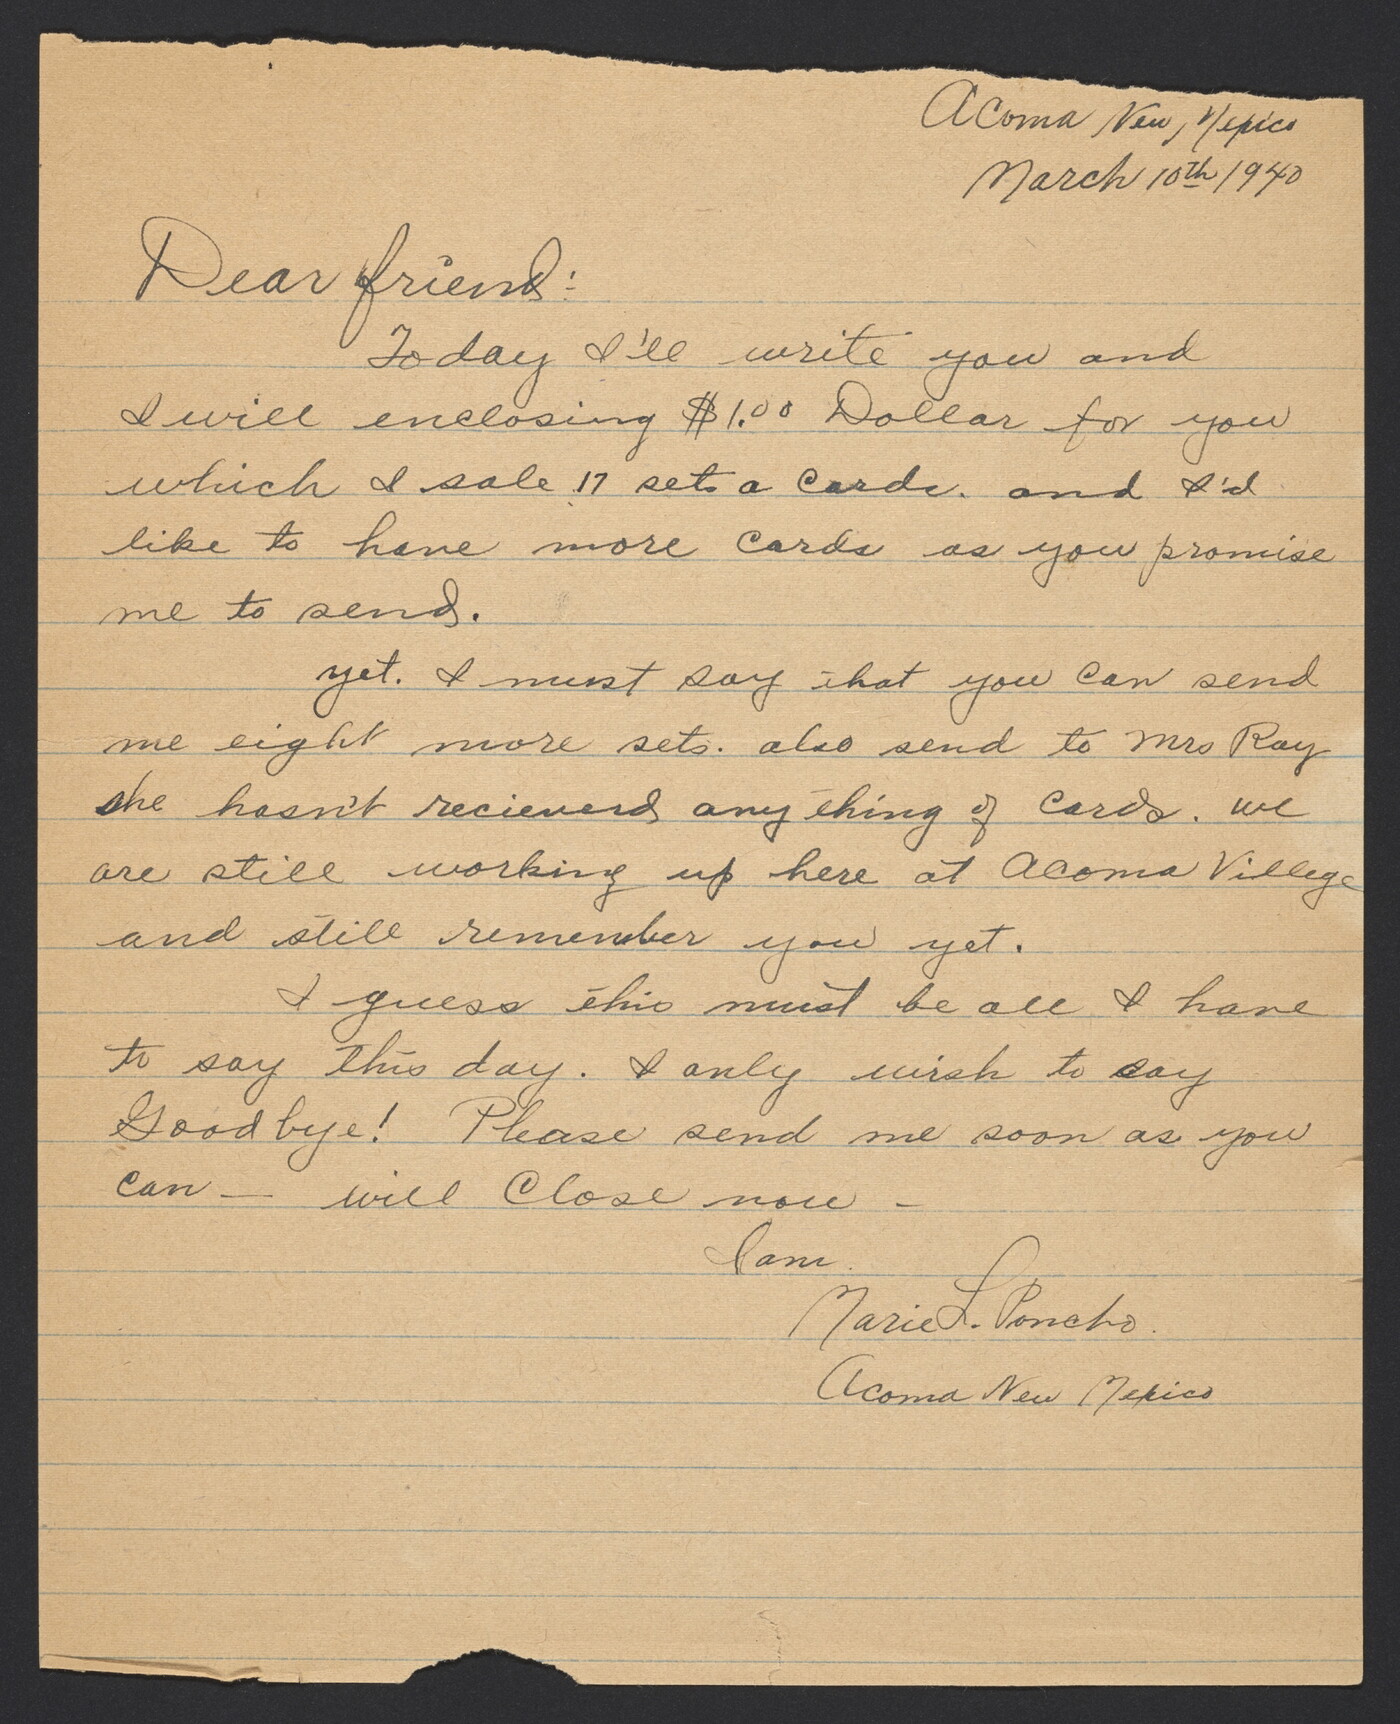 Acoma New, Mexico
March 10th 1940
Dear friend:
Today I'll write you and
I will enclosing $1.00 Dollar for you
which I sale 17 sets a Cards. and I'd
like to have more Cards as you promise
me to send.
yet. I must say that you can send
me eight more sets. also send to Mrs Ray
she hasn't recieverd any thing of Cards. we
are still working up here at Acoma Villege
and still remember you yet.
I guess this must be all I have
to say this day. I only wish to say
Goodbye! Please send me soon as you
can — will Close now -
I am.
Marie L. Poncho.
Acoma New Mexico